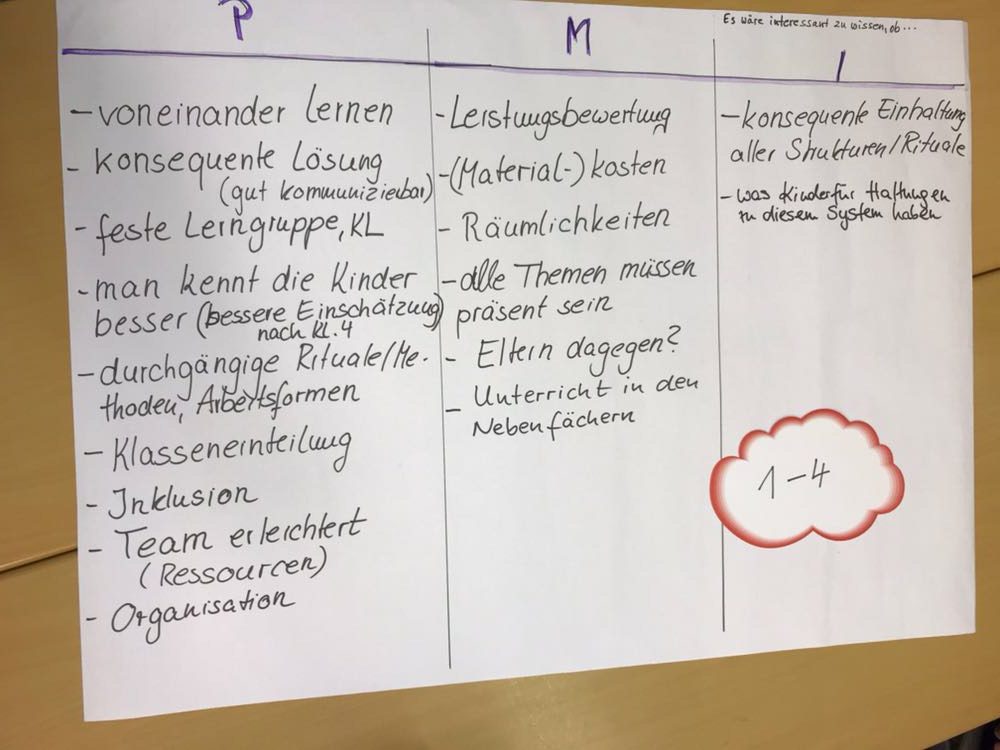 P
M
Es wäre interessant zu wissen, ob...
I
- voneinander lernen
- konsequente Lösung
(gut kommunizierbar)
- feste Lerngruppe, KL
- man kennt die Kinder
besser (bessere Einschätzung)
nach Kl. 4
- durchgängige Rituale/Me-
thoden, Arbeitsformen
- Klasseneinteilung
- Inklusion
- Team erleichtert
(Ressourcen)
- Organisation
- Leistungsbewertung
- (Material-) kosten
- Räumlichkeiten
- alle Themen müssen
präsent sein
- Eltern dagegen?
- Unterricht in den
Nebenfächern
- konsequente Einhaltung
aller Strukturen/Rituale
- was Kinder für Haltungen
zu diesem System haben
1-4